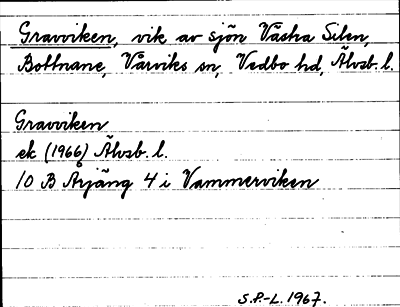 Gravviken, vik av sjön Västra Silen,
Bottnane, Vårviks sn, Vedbo hd, Älvsb. l.
Gravviken
ek (1966) Älvsb. l.
10 B Årjäng 4 i Vammerviken
S.P.-L. 1967.